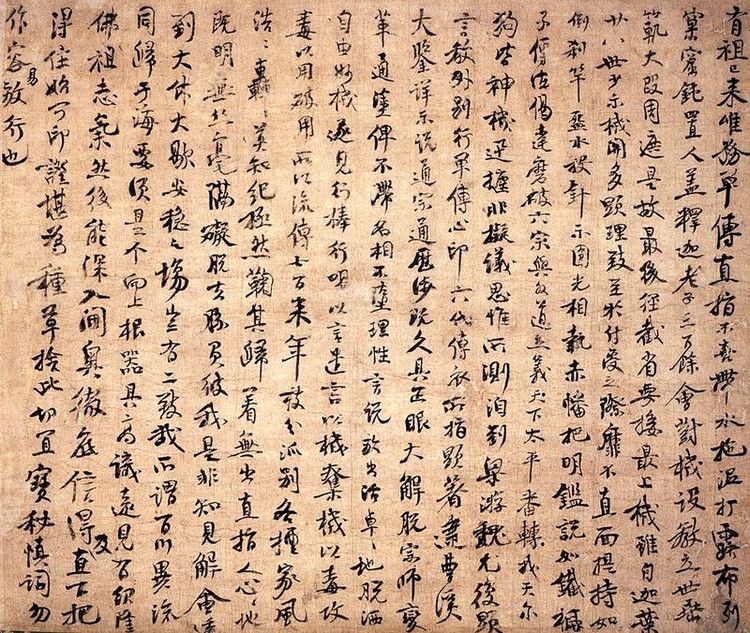 有祖已來唯務單傳直指不喜帶水拖泥打露布列
窠窟鈍置人蓋釋迦老子三百餘會對機設教立世垂
範大段周遮是故最後徑截省要接最上機雖自迦葉
廿八世少示機關多顯理致至於付受之際靡不直面提持如
倒刹竿盌水投針示圓光相執赤幡把明鑑說如鐵橛
子傳法偈達磨破六宗與外道立義天下太平番轉我天尔
狗皆神機迅捷非擬議思惟所測洎到梁游魏尤復顯
言教外別行單傳心印六代傳衣所指顯著逮曹溪
大鑒詳示說通宗通歷涉既久具正眼大解脫宗師變
革通塗俾不滯名相不墮理性言說放出活卓々地脫洒
自由妙機遂見行棒行喝以言遣言以機奪機以毒攻
毒以用破用所以流傳七百來年枝分派別各擅家風
浩々轟々莫知紀極然鞠其歸著無出直指人心々地
既明無絲毫隔礙脫去勝負彼我是非知見解會透
到大休大歇安穩之場豈有二致哉所謂百川異流
同歸于海要須是个向上根器具高識遠見有紹隆
佛祖志氣然後能深入閫奧徹底信得及直下把
得住始可印證堪為種草捨此切宜寶秘慎詞勿
作容易放行也